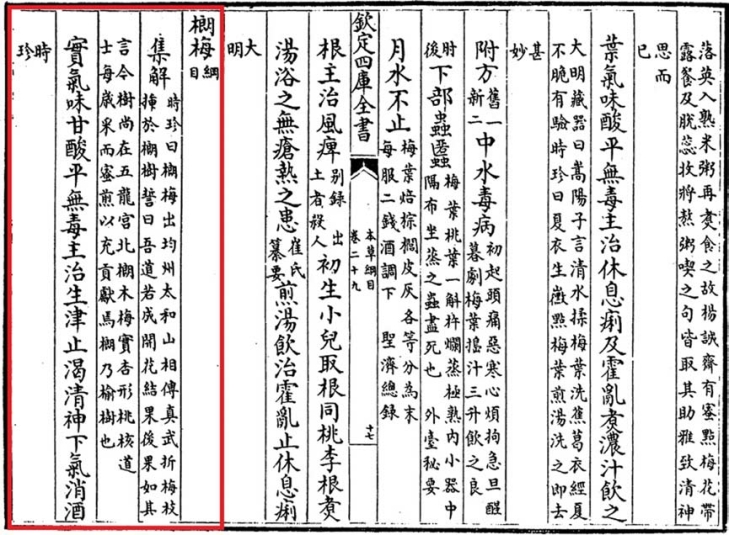 落英入熟米粥再煑食之故楊誠齋有蜜㸃梅花帶
露餐及脫蕊收將熬粥喫之句皆取其助雅致清神
思而
已
葉氣味酸平無毒主治休息痢及霍亂煑濃汁飲之
大明藏器曰嵩陽子言清水揉梅葉洗蕉葛衣經夏
不脆有驗時珍曰夏衣生黴㸃梅葉煎湯洗之即去
甚
妙
附方舊一新二中水毒病初起頭痛惡寒心煩拘急旦醒
暮劇梅葉搗汁三升飲之良
肘後下部蟲䘌梅葉桃葉一斛杵爛蒸極熟內小器中
隔布坐蒸之蟲盡死也 外臺秘要
月水不止梅葉焙椶櫚皮灰各等分為末
每服二錢酒調下 聖濟總錄
欽定四庫全書
本草綱目
卷二十九
十七
根主治風痺別錄出土者殺人初生小兒取根同桃李根煑
湯浴之無瘡熱之患崔氏纂要煎湯飲治霍亂止休息痢
大
明
榔梅綱目
集解時珍曰榔梅出均州太和山相傳真武折梅枝
插於榔樹誓曰吾道若成開花結果後果如其
言今樹尚在五龍宮北榔木梅實杏形桃核道
士每歲采而蜜煎以充貢獻焉榔乃榆樹也
實氣味甘酸平無毒主治生津止渴清神下氣消酒
時
珍